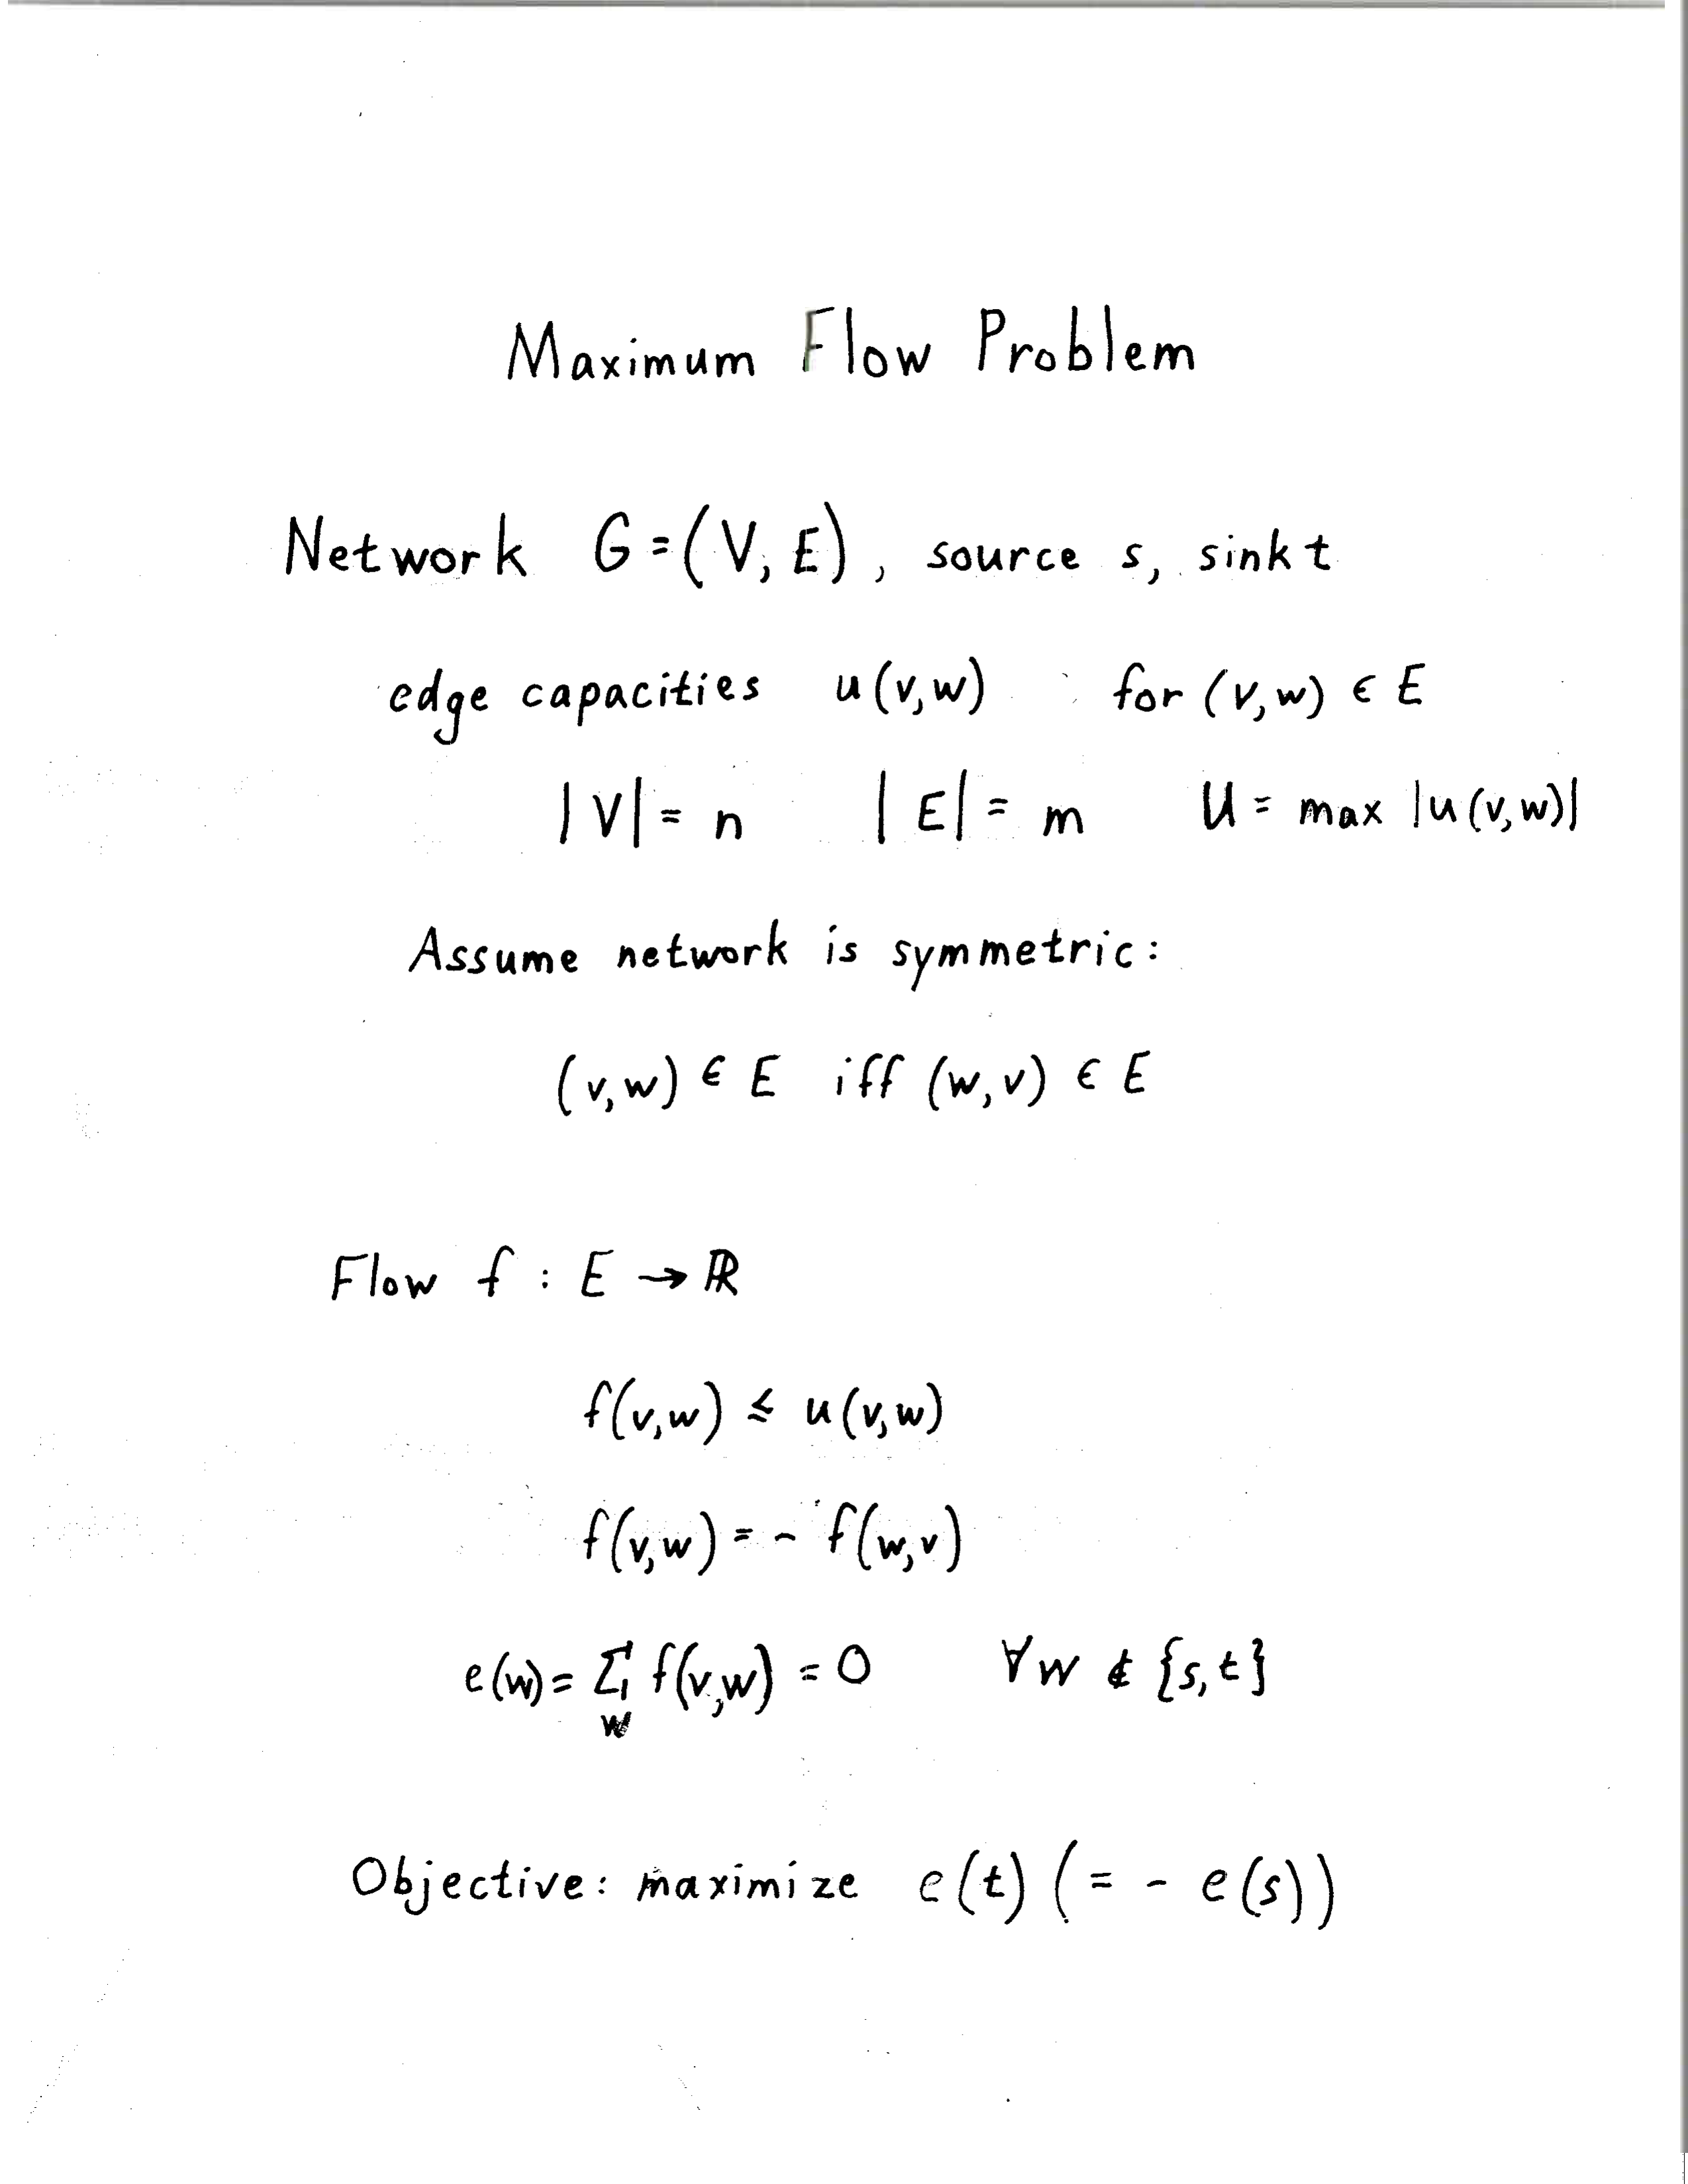 Maximum Flow Problem
Network G = (V, E), source s, sink t
edge capacities u(v,w) for (v,w) ∈ E
|V| = n |E| = m U = max |u(v,w)|
Assume network is symmetric:
(v,w) ∈ E iff (w,v) ∈ E
Flow f : E → ℝ
f(v,w) ≤ u(v,w)
f(v,w) = - f(w,v)
e(w) = Σ f(v,w) = 0 ∀w ∉ {s,t}
w
Objective: maximize e(t) (= - e(s))